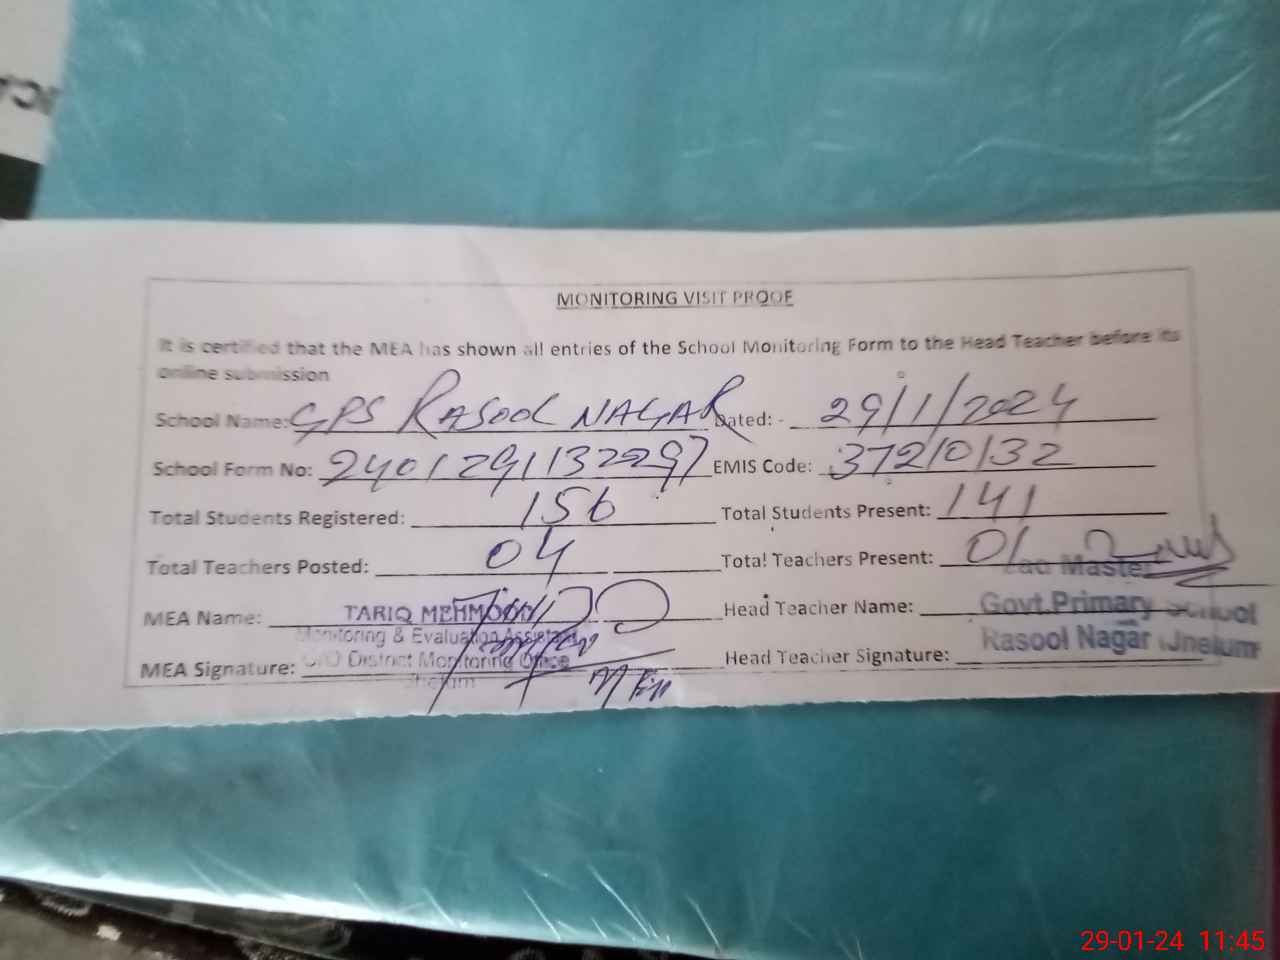 MONITORING VISIT PROOF
It is certified that the MEA has shown all entries of the School Monitoring Form to the Head Teacher before its
online submission
School Name: GPS RASOOL NAGAR Dated: - 29/1/2024
School Form No: 2401291132297 EMIS Code: 37210132
Total Students Registered: 156 Total Students Present: 141
Total Teachers Posted: 04 Total Teachers Present: 01
Master
MEA Name: TARIQ MEHMOOD Head Teacher Name: Govt.Primary School
Monitoring & Evaluation Assistant
MEA Signature: O/O District Monitoring Office Head Teacher Signature: Rasool Nagar Jhelum
Jhelum
29-01-24 11:45